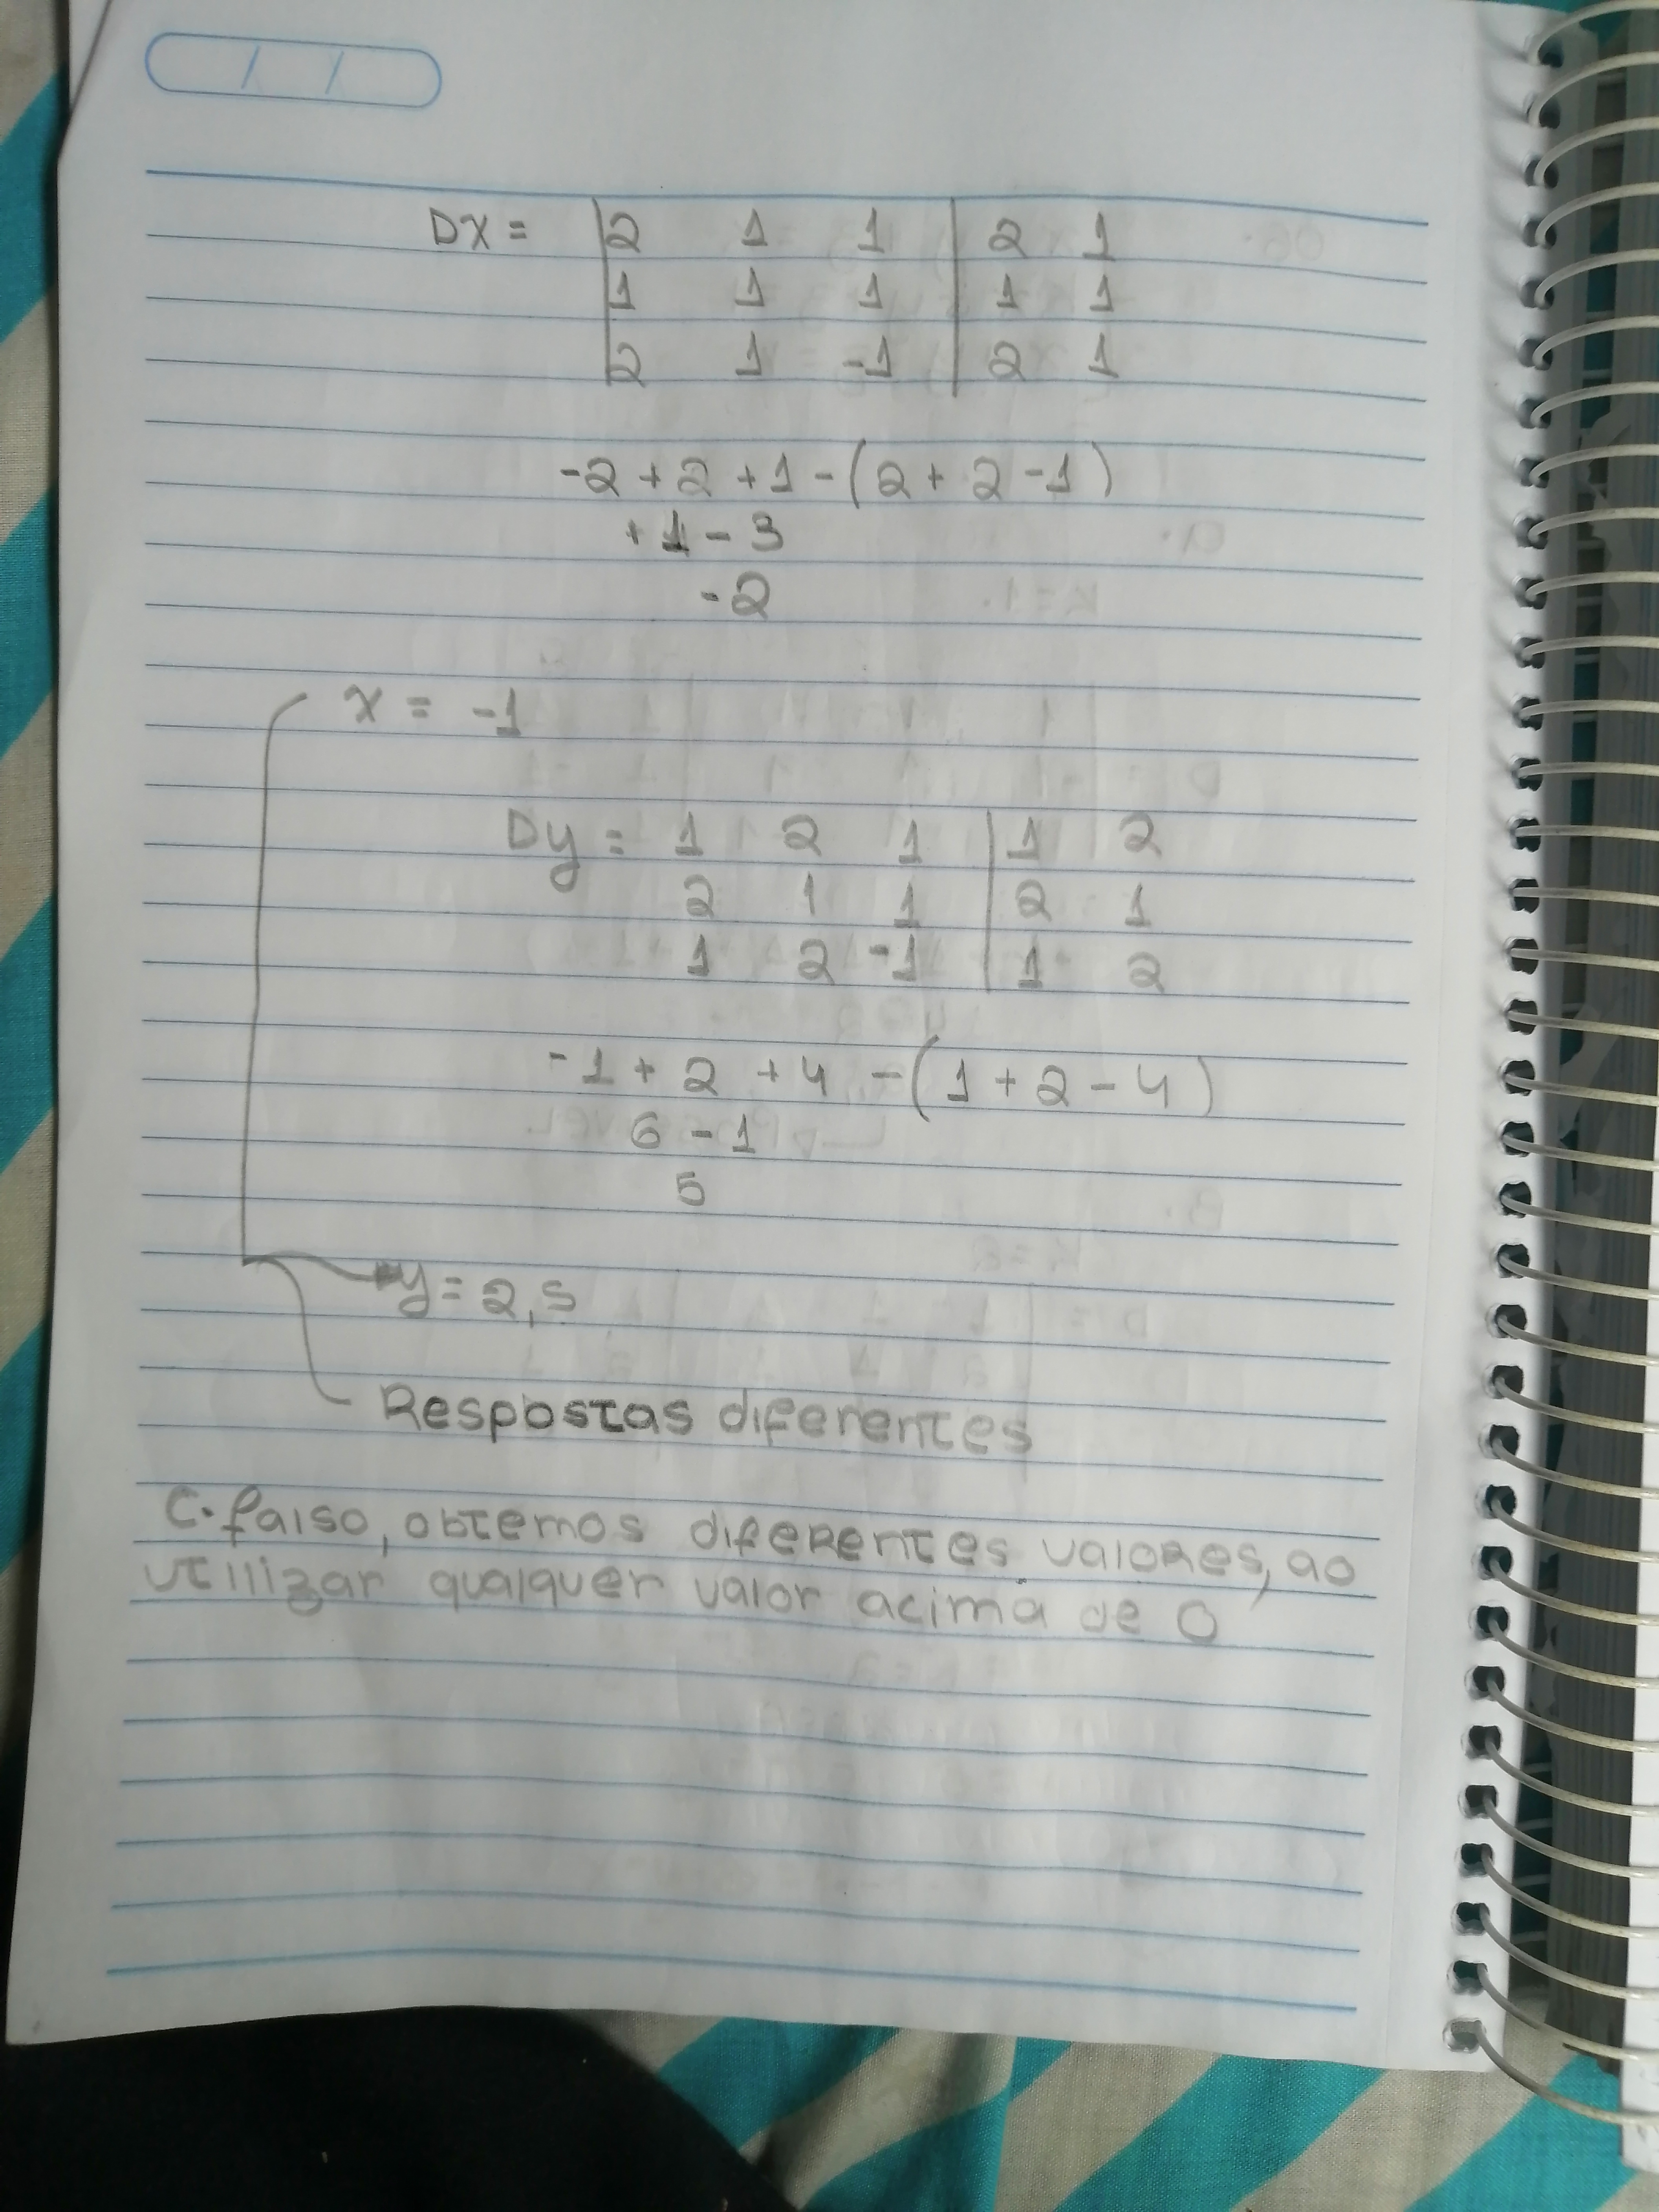 DX = |2 1 1 | 2 1
1 1 1 | 1 1
2 1 -1 | 2 1
-2 + 2 + 1 - (2 + 2 - 1)
+ 1 - 3
-2
x = -1
Dy = 1 2 1 | 1 2
2 1 1 | 2 1
1 2 -1 | 1 2
-1 + 2 + 4 - (1 + 2 - 4)
6 - 1
5
y = 2,5
Respostas diferentes
C. falso, obtemos diferentes valores, ao
utilizar qualquer valor acima de 0